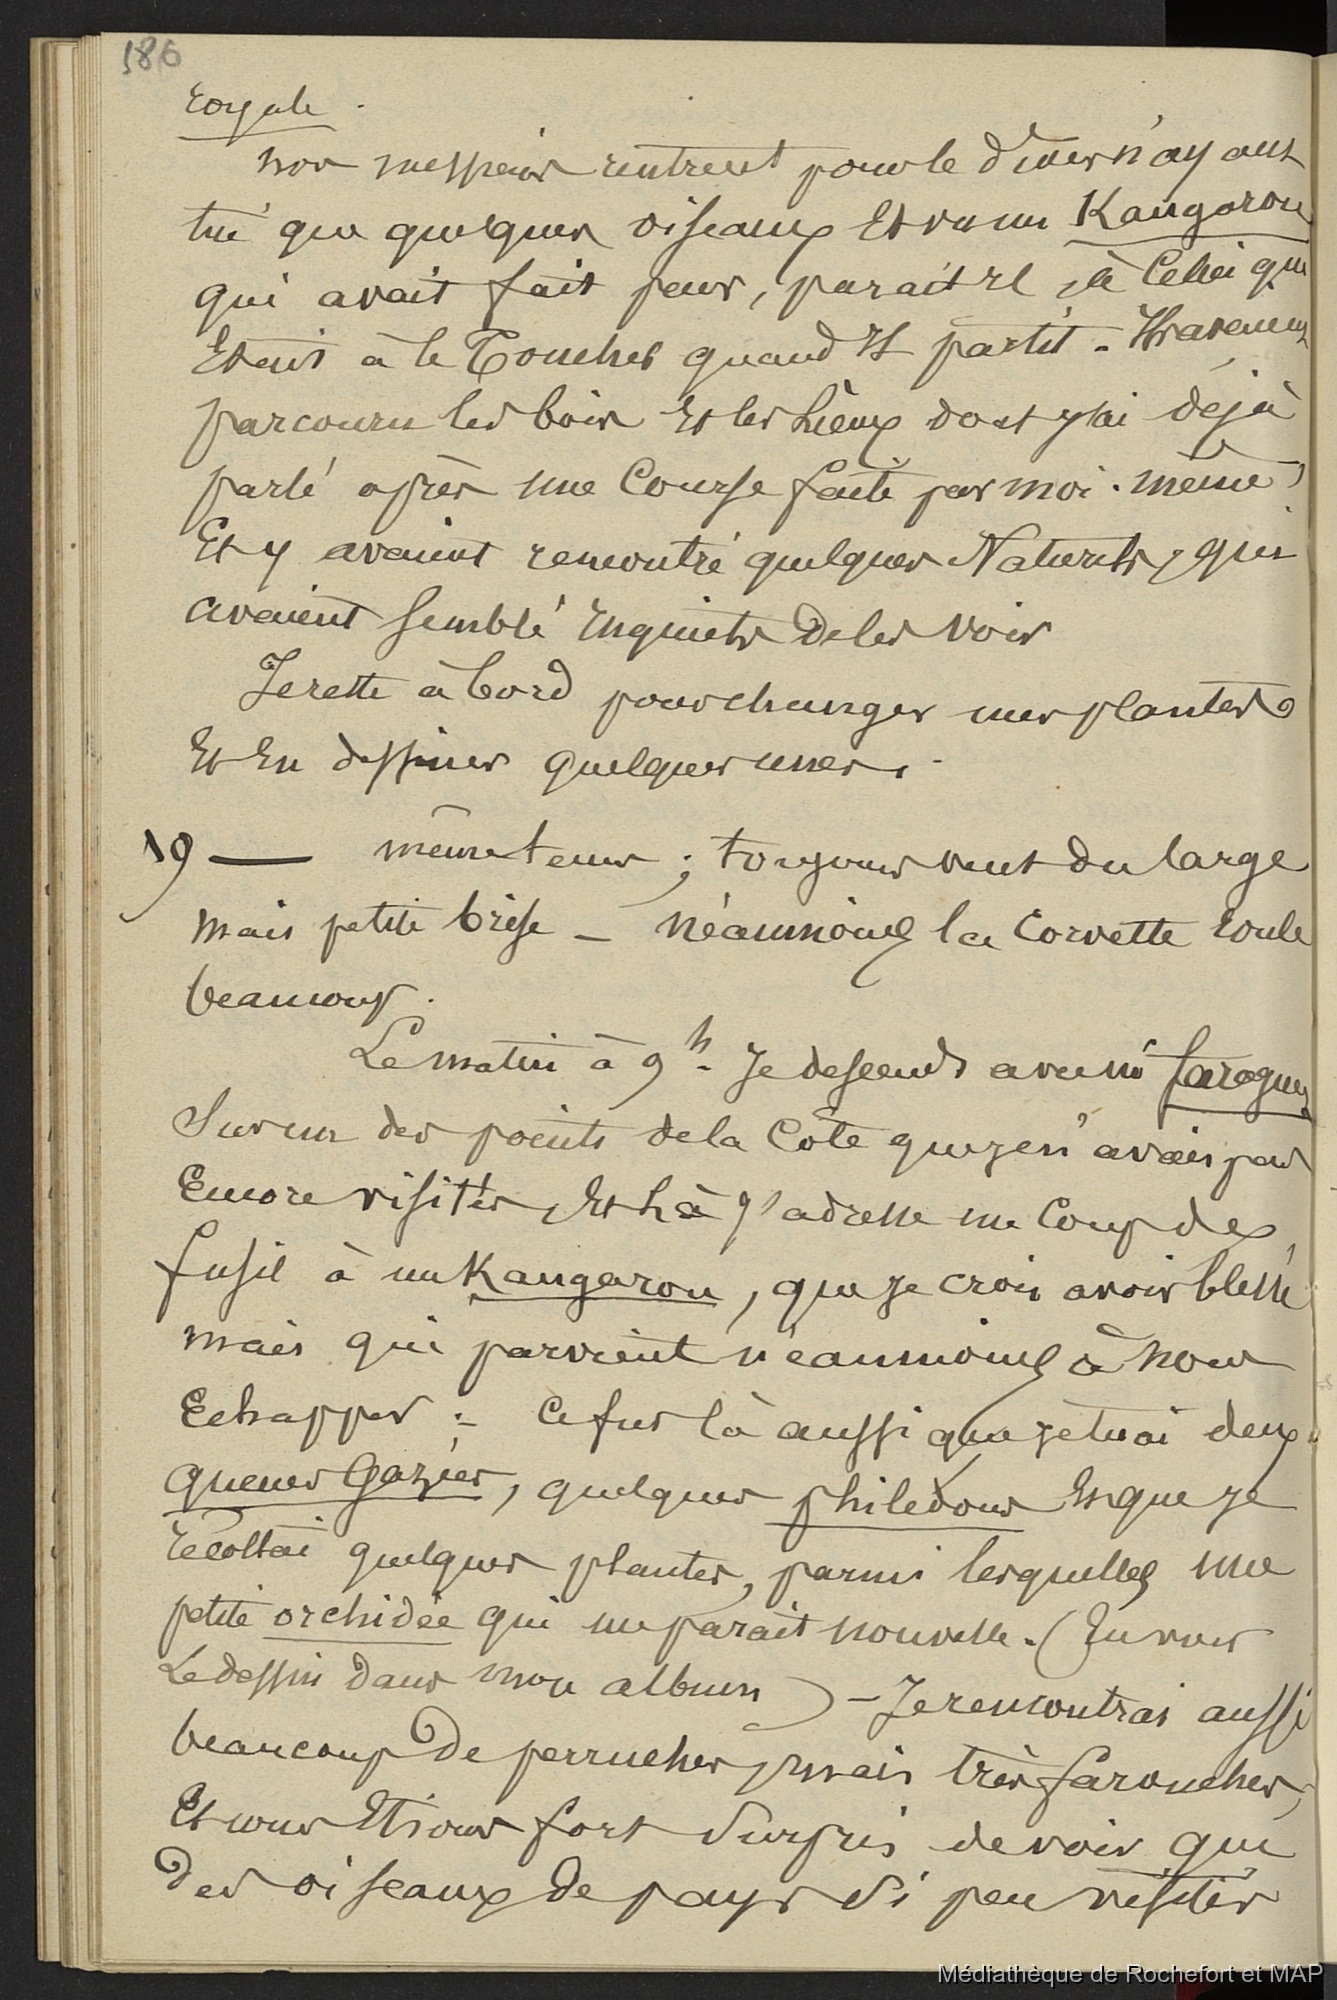 186
royale.
nos messieurs rentrent pour le diner n'ayant
tué que quelques oiseaux et vu un Kangarou
qui avait fait peur, parait il, à celui qui
Etait à le toucher quand il partit - Ils avaient
parcouru les bois et les lieux dont j'ai déjà
parlé après une Course faite par moi-même
Et y avaient rencontré quelques Naturels, qui
avaient semblé inquiets de les voir
Je reste à bord pour changer mes plantes
Et En dessiner quelques unes.
19 — même tems ; toujours vent du large
mais petite brise - néanmoins la Corvette roule
beaucoup.
Le matin à 9h. Je descends avec mr
Sur un des points de la Côte que je n'avais pas
Encore visités, Et là j'adresse un Coup de
fusil à un Kangarou, que je crois avoir blessé
mais qui parvient néanmoins à nous
Echapper ; - Ce fut là aussi que je tuai deux
queues Gazées, quelques philedons Et que je
recoltai quelques plantes, parmi lesquelles une
petite orchidée qui me parait nouvelle. (En voir
Le dessin dans mon album) - Je rencontrai aussi
beaucoup de perruches, mais très farouches,
Et nous Etions fort Surpris de voir que
des oiseaux de pays Si peu visités
Médiathèque de Rochefort et MAP